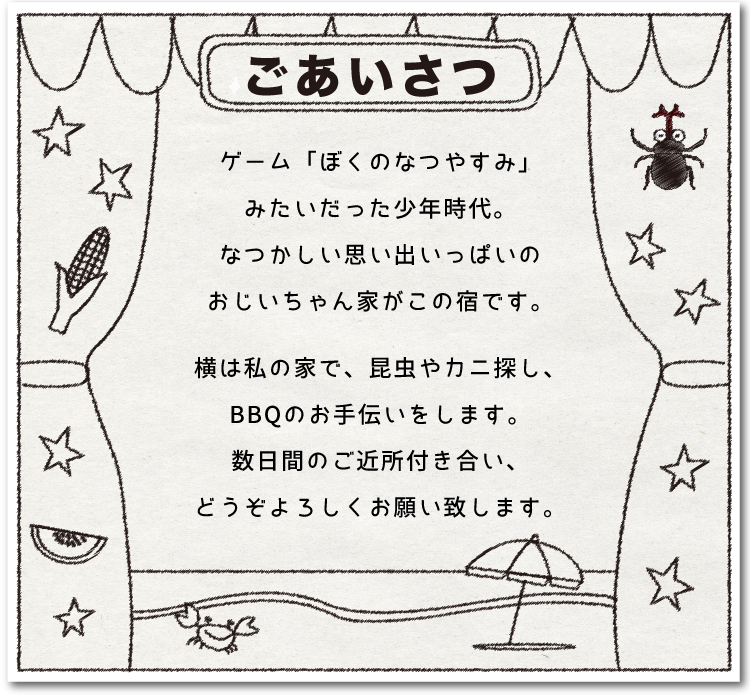 ごあいさつ
ゲーム「ぼくのなつやすみ」
みたいだった少年時代。
なつかしい思い出いっぱいの
おじいちゃん家がこの宿です。
横は私の家で、昆虫やカニ探し、
BBQのお手伝いをします。
数日間のご近所付き合い、
どうぞよろしくお願い致します。